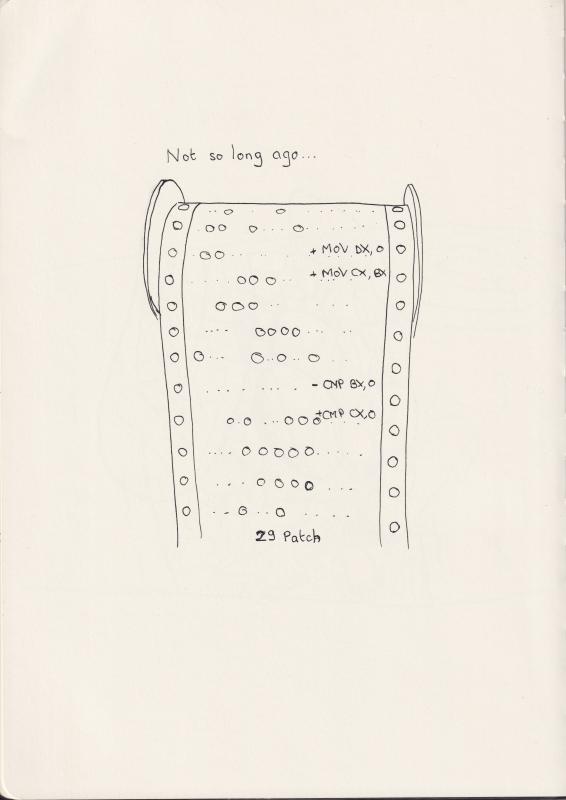 Not so long ago...
+ MOV DX,0
+ MOV CX, BX
- CMP BX,0
+CMP CX,0
29 Patch